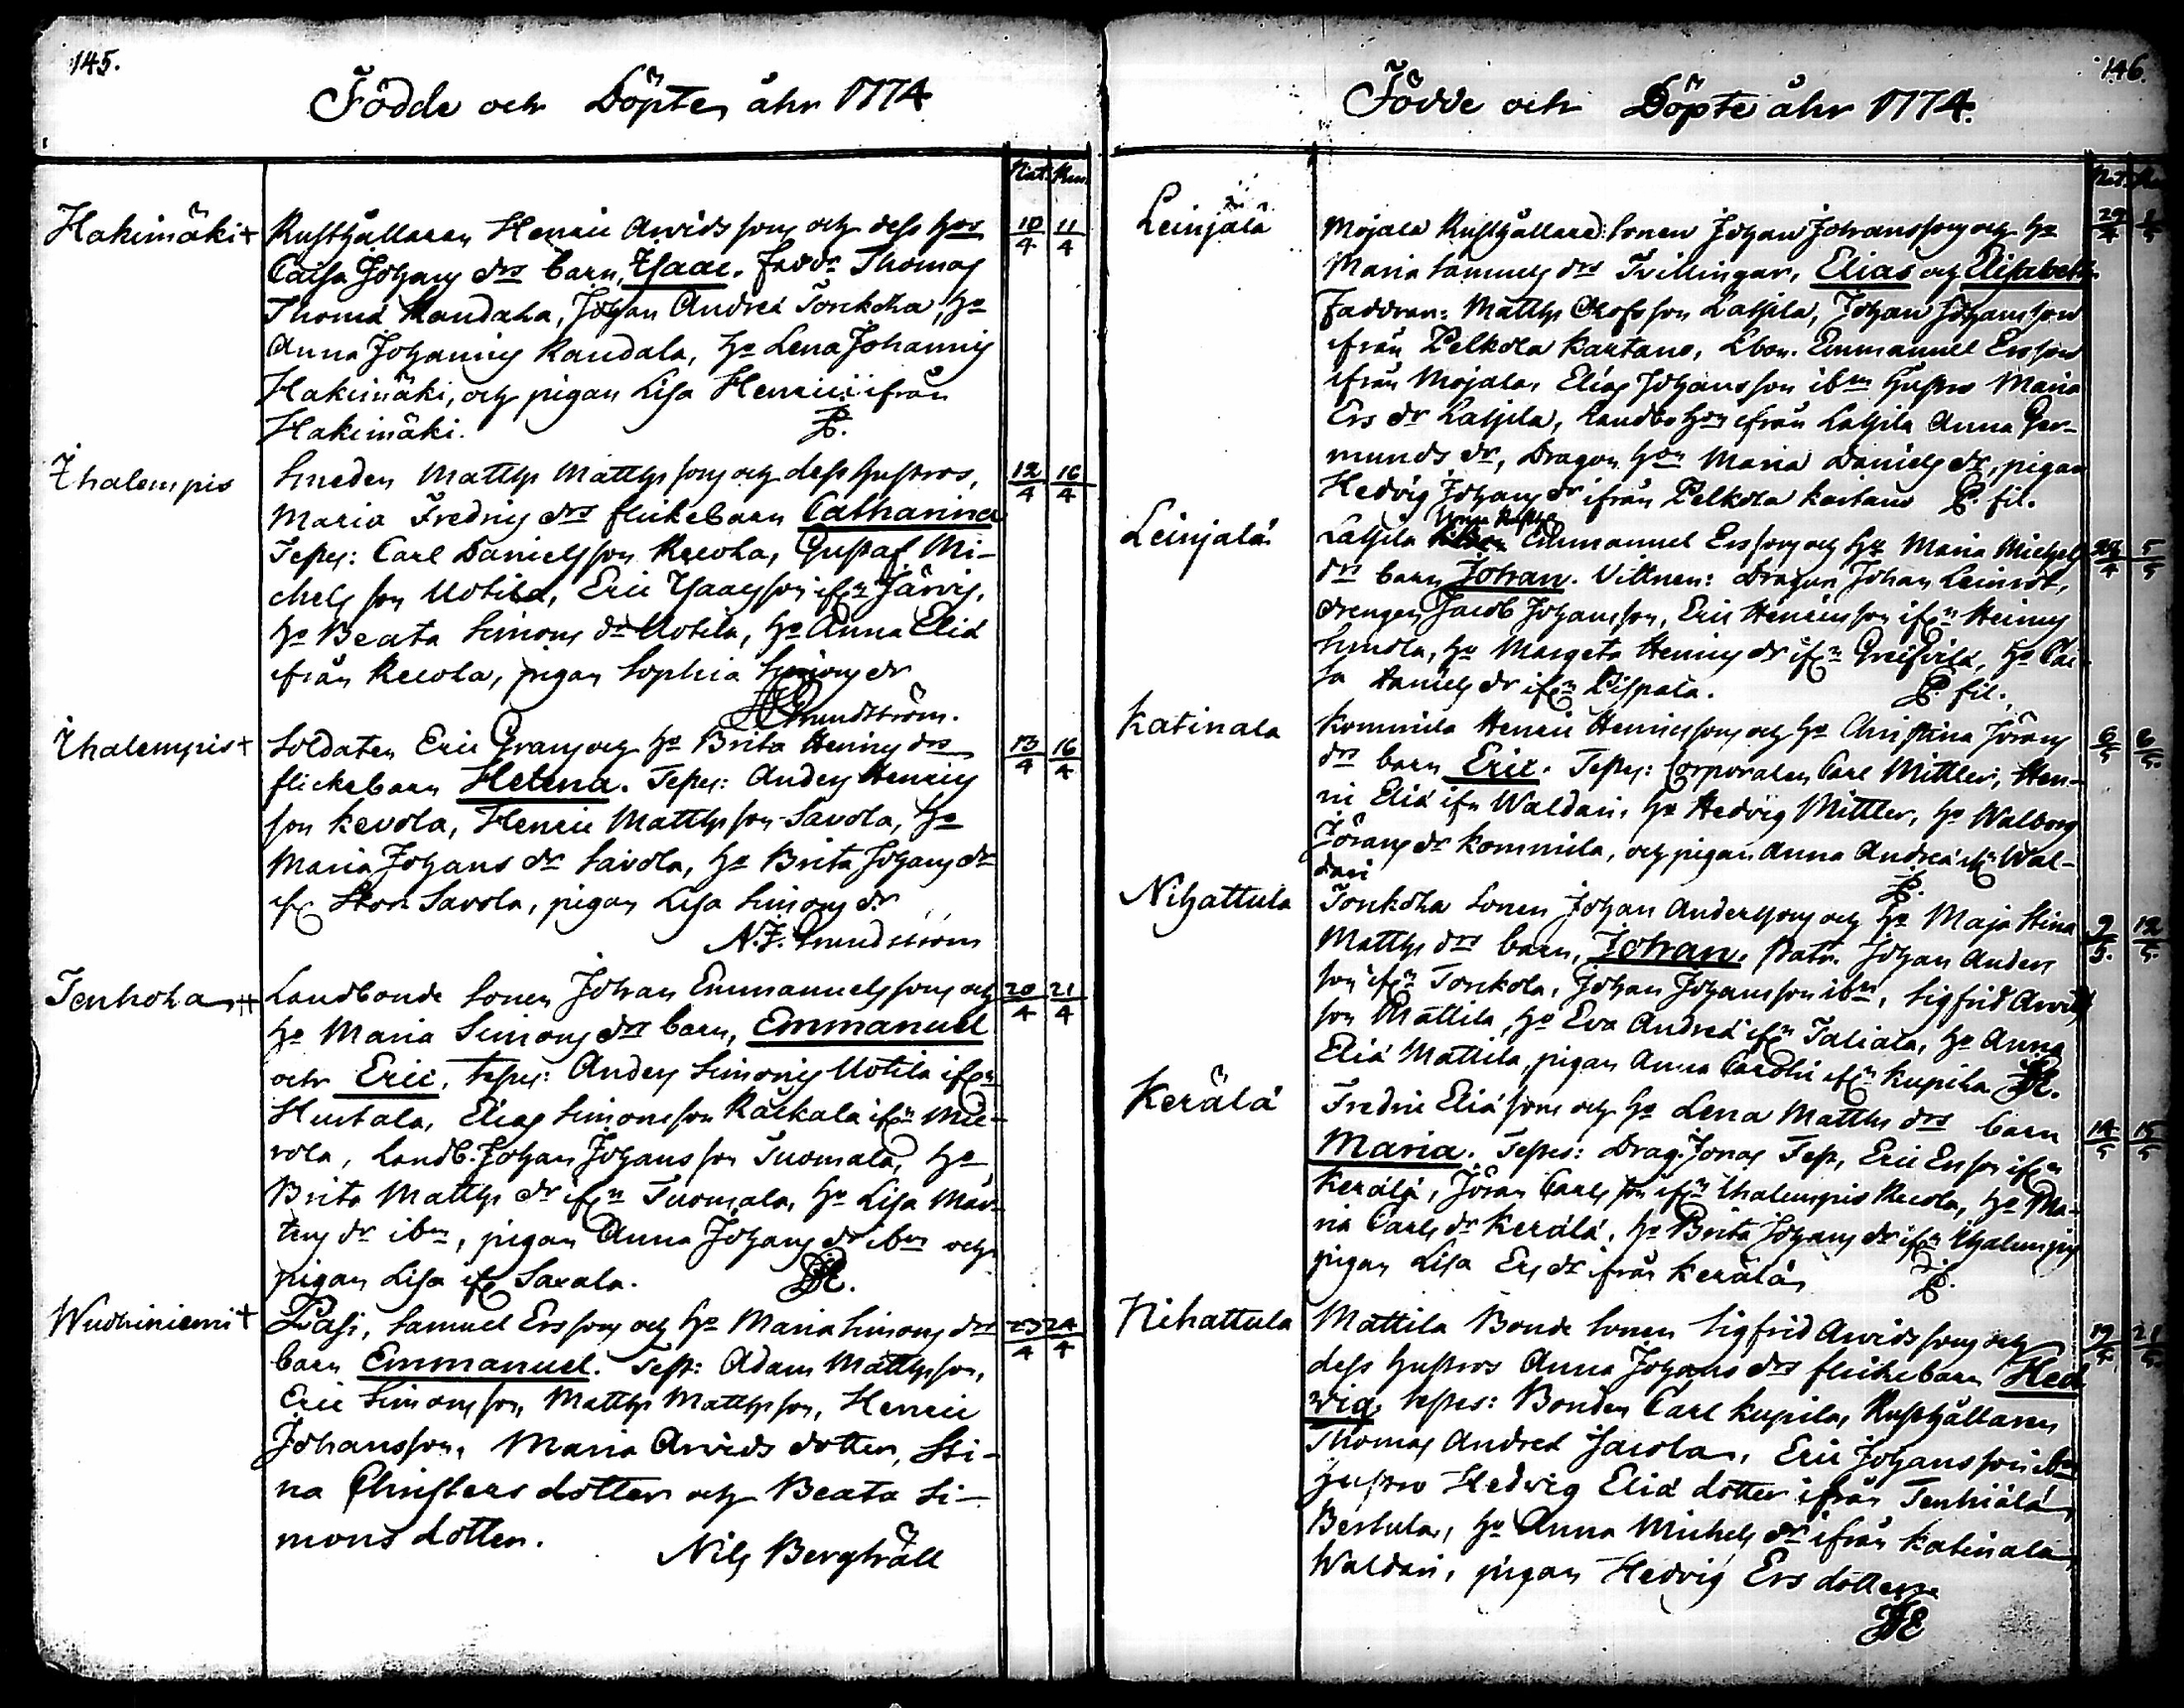 145.
Födde och Döpte åhr 1774
Nat. Ren.
Hakimäki + Rusthållaren Henric Arvids son och dess hos 10/4 11/4
Caisa Johans drs barn, Isaac. Faddr Thomas
Thomæ Kandala, Johan Andreæ Tonkola, ho
Anna Johannis Kandala, ho Lena Johannis
Hakimäki, och pigan Lisa Henrici ifrån
Hakimäki. P.
Ihalempis Smeden Matths Matths son och dess hustros, 12/4 16/4
Maria Fredrics drs flickebarn Catharina
Testes: Carl Danielsson Recola, Gustaf Mi-
chels son Uotila, Eric Isaacsson ifrn Järvis,
ho Beata Simons dr Uotila, ho Anna Eliæ
ifrån Recola, pigan Sophia Simons dr
Grundström.
Ihalempis + Soldaten Eric Grans och ho Brita Henrics drs 13/4 16/4
flickebarn Helena. Testes: Anders Henrics
son Kevola, Henric Matths son Savola, ho
Maria Johans dr Savola, ho Brita Johans dr
ifr Stor Savola, pigan Lisa Simons dr
N. J. Grundström
Tenhola ++ Landbonde Sonen Johan Emmanuels sons och 20/4 21/4
ho Maria Simons drs barn, Emmanuel
och Eric, testes: Anders Simonis Uotila ifrn
Hurtala, Elias Simonsson Räikälä ifrn Mie-
rola, Landb. Johan Johans son Tuomala, ho
Brita Matths dr ifrn Tuomala, ho Lisa Mår-
tens dr ibm, pigan Anna Johans dr ibm och
pigan Lisa ifr Saxala.
Wuohiniemi + Pasi, Samuel Ers sons och ho Maria Simons drs 23/4 24/4
barn Emmanuel. Test: Adam Matthsson,
Eric Simons son, Matths Matths son, Henric
Johansson, Maria Arvids dotter, Sti-
na Christers dotter och Beata Si-
mons dotter.
Nils Berghäll
146.
Födde och Döpte åhr 1774.
Nat. Ren.
Leinjälä Mojala Rusthållare Sonen Johan Johanssons och ho 29/4 1/5
Maria Samuels drs Tvillingar, Elias och Elisabeth
Faddran: Matths Olofsson Lahjila, Johan Johansson
ifrån Pelkola Kartano, Lbon. Emmanuel Ersson
ifrån Mojala, Elias Johansson ibm hustro Maria
Ers dr Lahjila, Landbo hon ifrån Lahjila Anna Ger-
munds dr, Dragon hon Maria Daniels dr, pigan
Hedvig Johans dr ifrån Pelkola Kartano P. fil.
Leinjälä. Lahjila Emmanuel Ers sons och ho Maria Michels 5/5
drs barn Johan. Vittnen: Dragon Johan Leinrot,
drengen Jacob Johansson, Eric Henricsson ifrn Heinus
Smola, ho Margeta Henrics dr ifrn Greisvilä, ho Cai-
sa Daniels dr ifrn Pispala. P. fil.
Katinala Kommila Henric Henricssons och ho Christina Jörans 6/5 6/5.
drs barn Eric. Testes: Corporalen Carl Mittler, Hen-
ric Eliæ ifn Waldari, ho Hedvig Mittler, ho Walborg
Jörans dr Kommila, och pigan Anna Andreæ ifrn Wal-
dari P.
Nihattula Tonkola Sonen Johan Anderssons och ho Maja Stina 9/5. 12/5.
Matths drs barn, Johan. Patr. Johan Anders
son ifrn Tonkola, Johan Johansson ibm, Sigfrid Arvids
son Mattila, ho Eva Andreæ ifrn Taliala, ho Anna
Eliæ Mattila, pigan Anna Caroli ifrn Kupila
Kerälä Fredric Eliæ sons och ho Lena Matths drs barn 14/5 15/5
Maria. Testes: Drag. Jonas Test, Eric Ersson ifrn
Kerälä, Jöran Carls son ifrn Ihalempis Recola, ho Ma-
ria Carls dr Kerälä, ho Brita Johans dr ifrn Ihalempis
pigan Lisa Ers dr ifrån Kerälä P.
Nihattula Mattila Bonde Sonen Sigfrid Arvids sons och 19/5. 21/5.
dess hustros Anna Johans drs flickebarn Hed-
vig. testes: Bonden Carl Kupila, Rusthållaren
Thomas Andreæ Jacola, Eric Johansson ibm
hustro Hedvig Eliæ dotter ifrån Tenhiälä
Bertula, ho Anna Michels dr ifrån Katinala
Waldari, pigan Hedvig Ers dotter